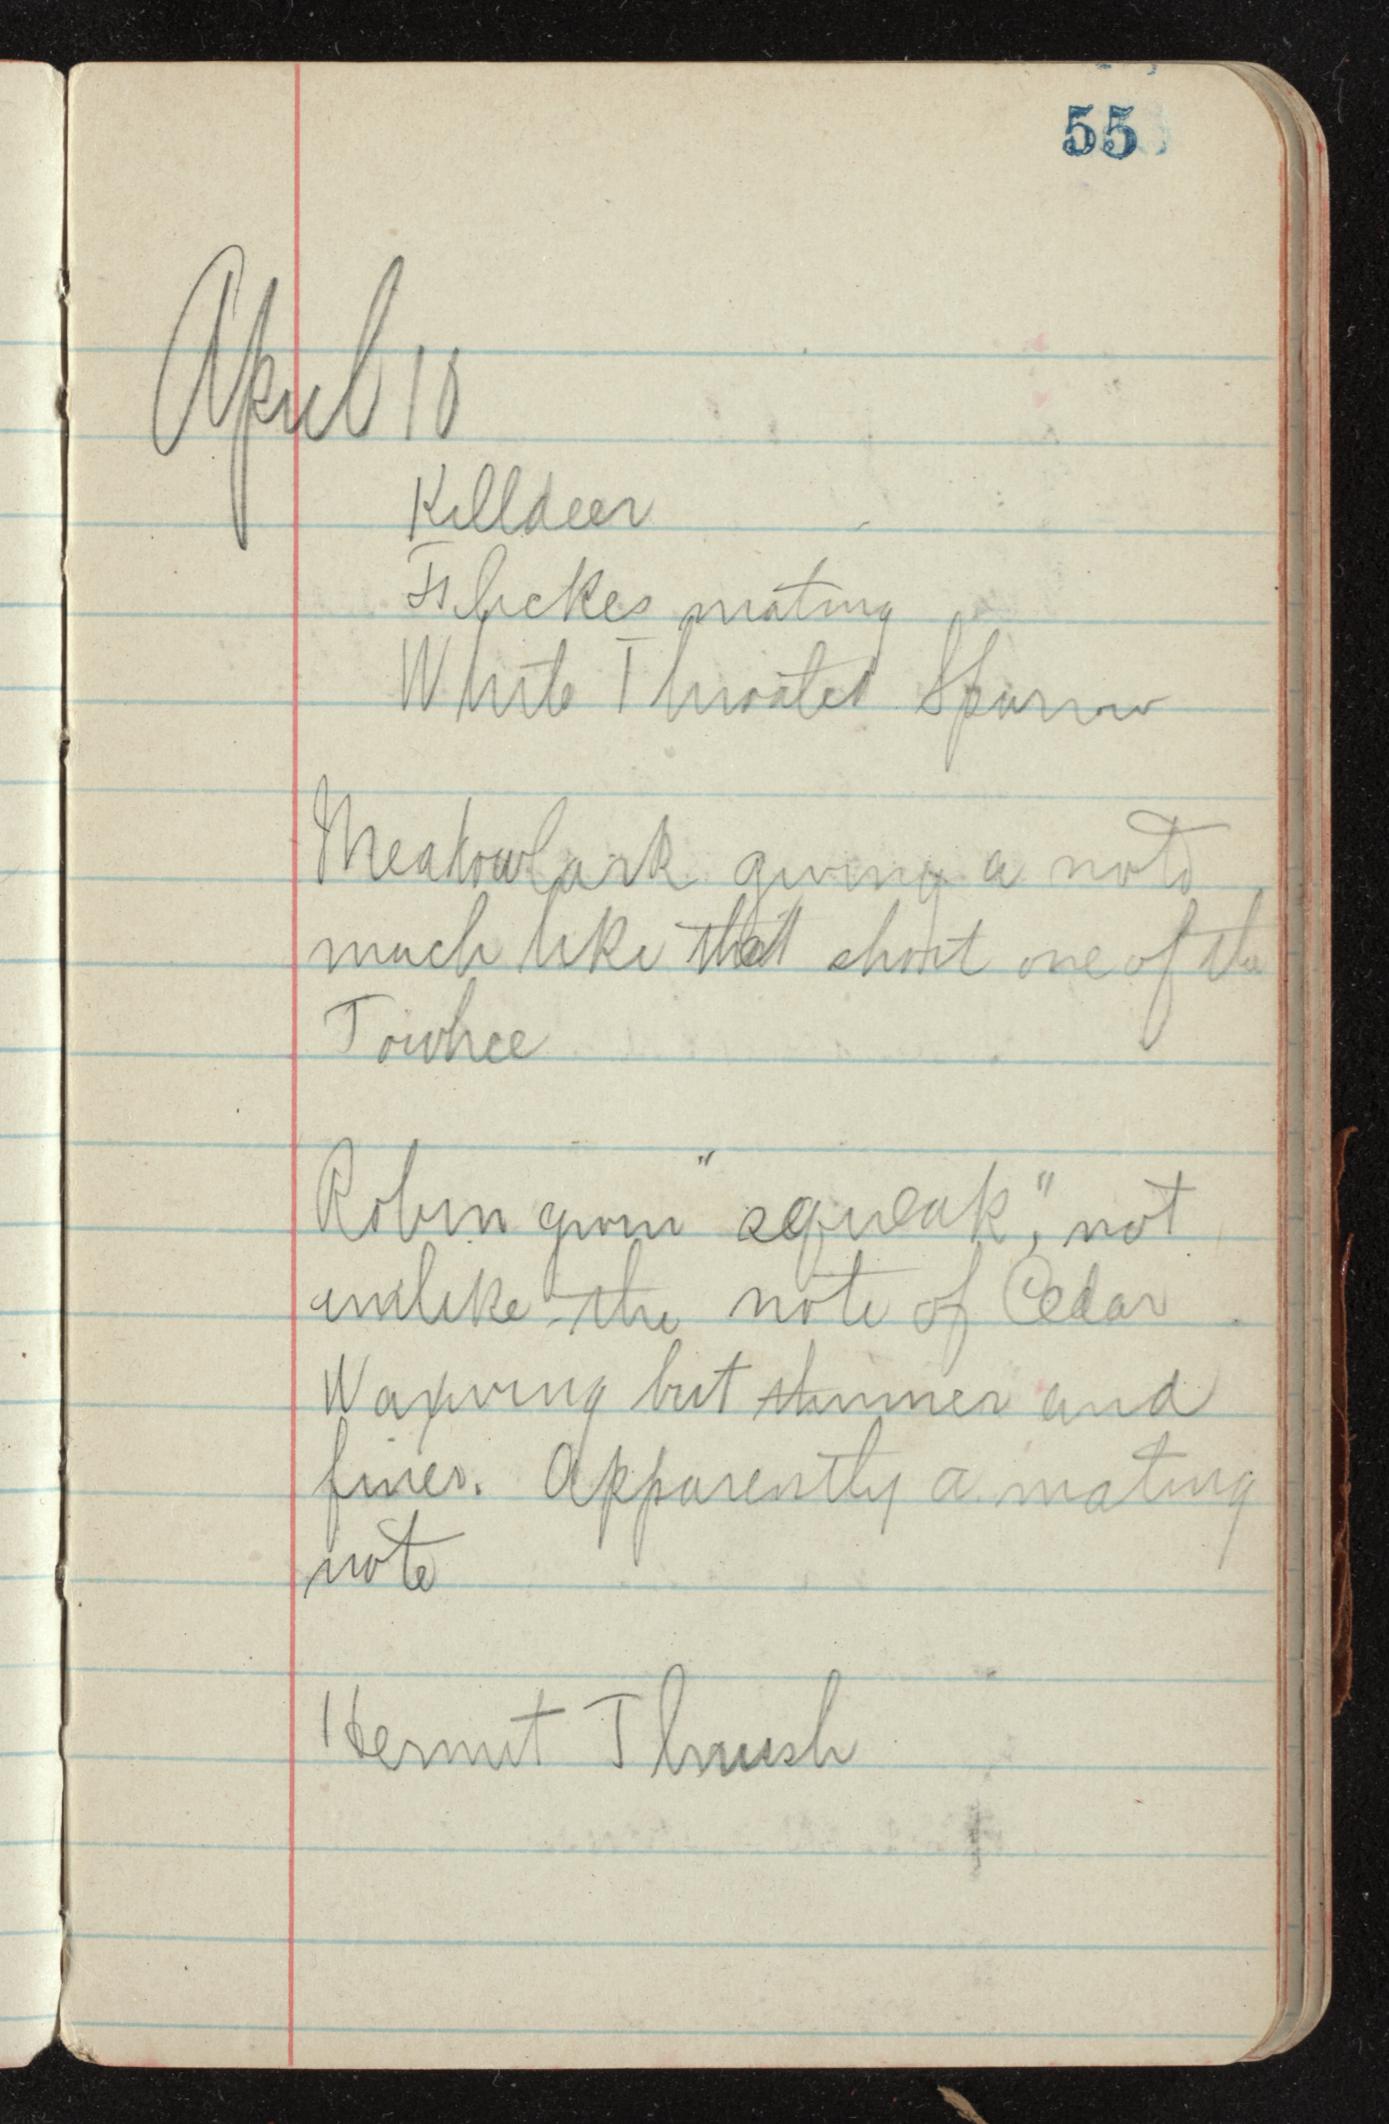 55
April 10
Killdeer
Flickes mating
White Throated Sparrow
Meadowlark giving a note
much like that short one of the
Towhee
Robin "squeak", not
unlike the note of Cedar
Waxwing but and
finer. Apparently a mating
note
Hermit Thrush